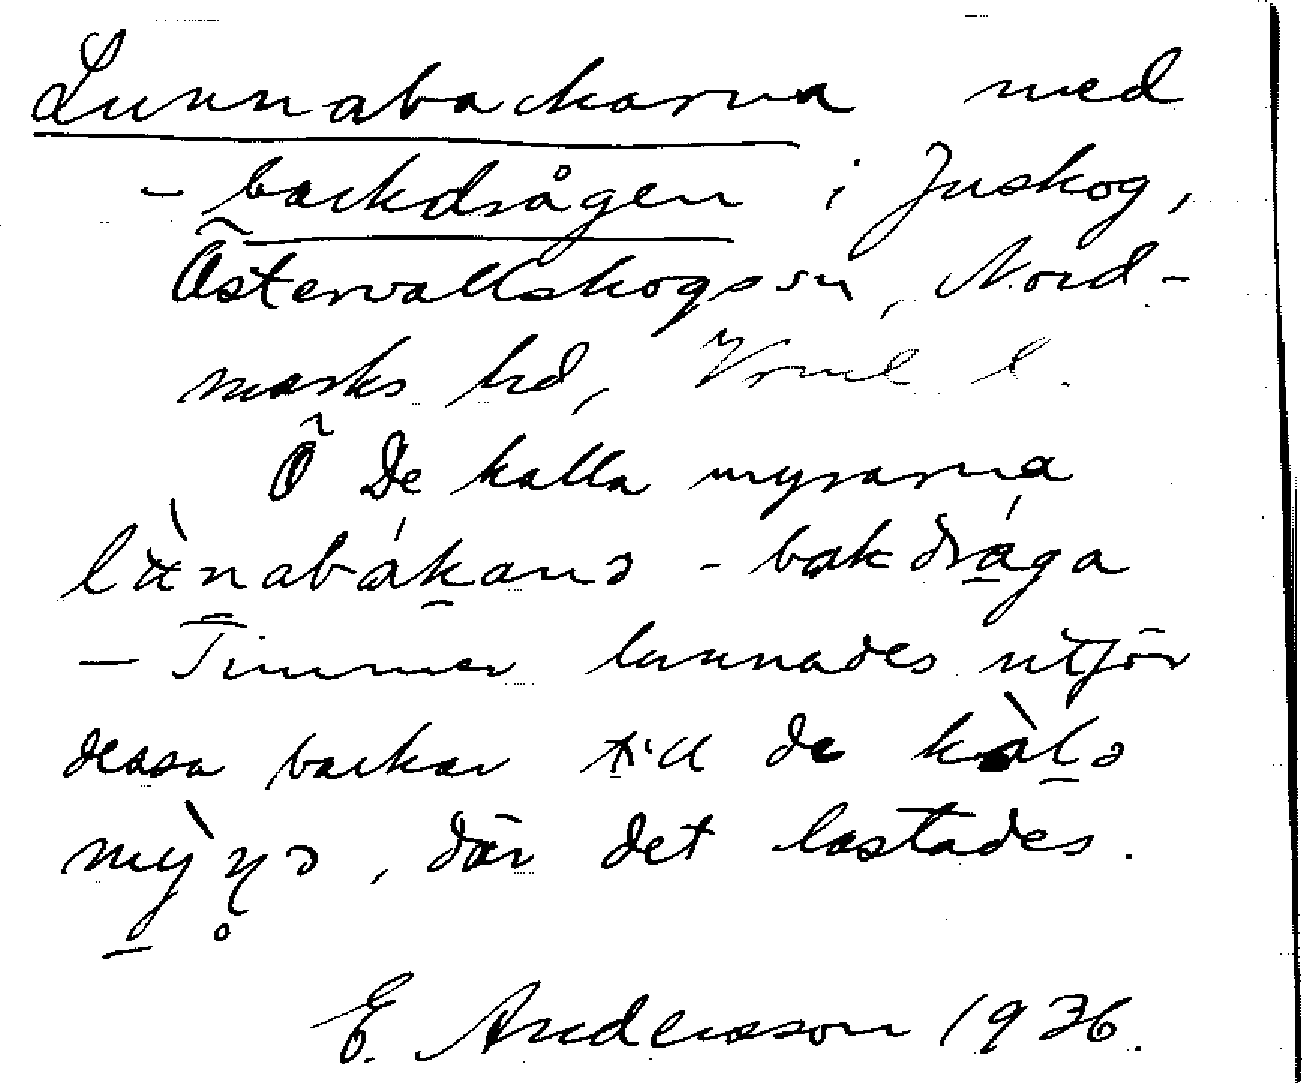 Lunnabackarna med
- backdrågen i Juskog,
Östervallskogs sn, Nord-
marks hd, Vrml l.
Õ De kalla myrarna
lä̀nabákanə - bakdrága
— Timmer lunnades utför
dessa backar till de kàlə
mỳrə, där det lastades.
E. Andersson 1936.